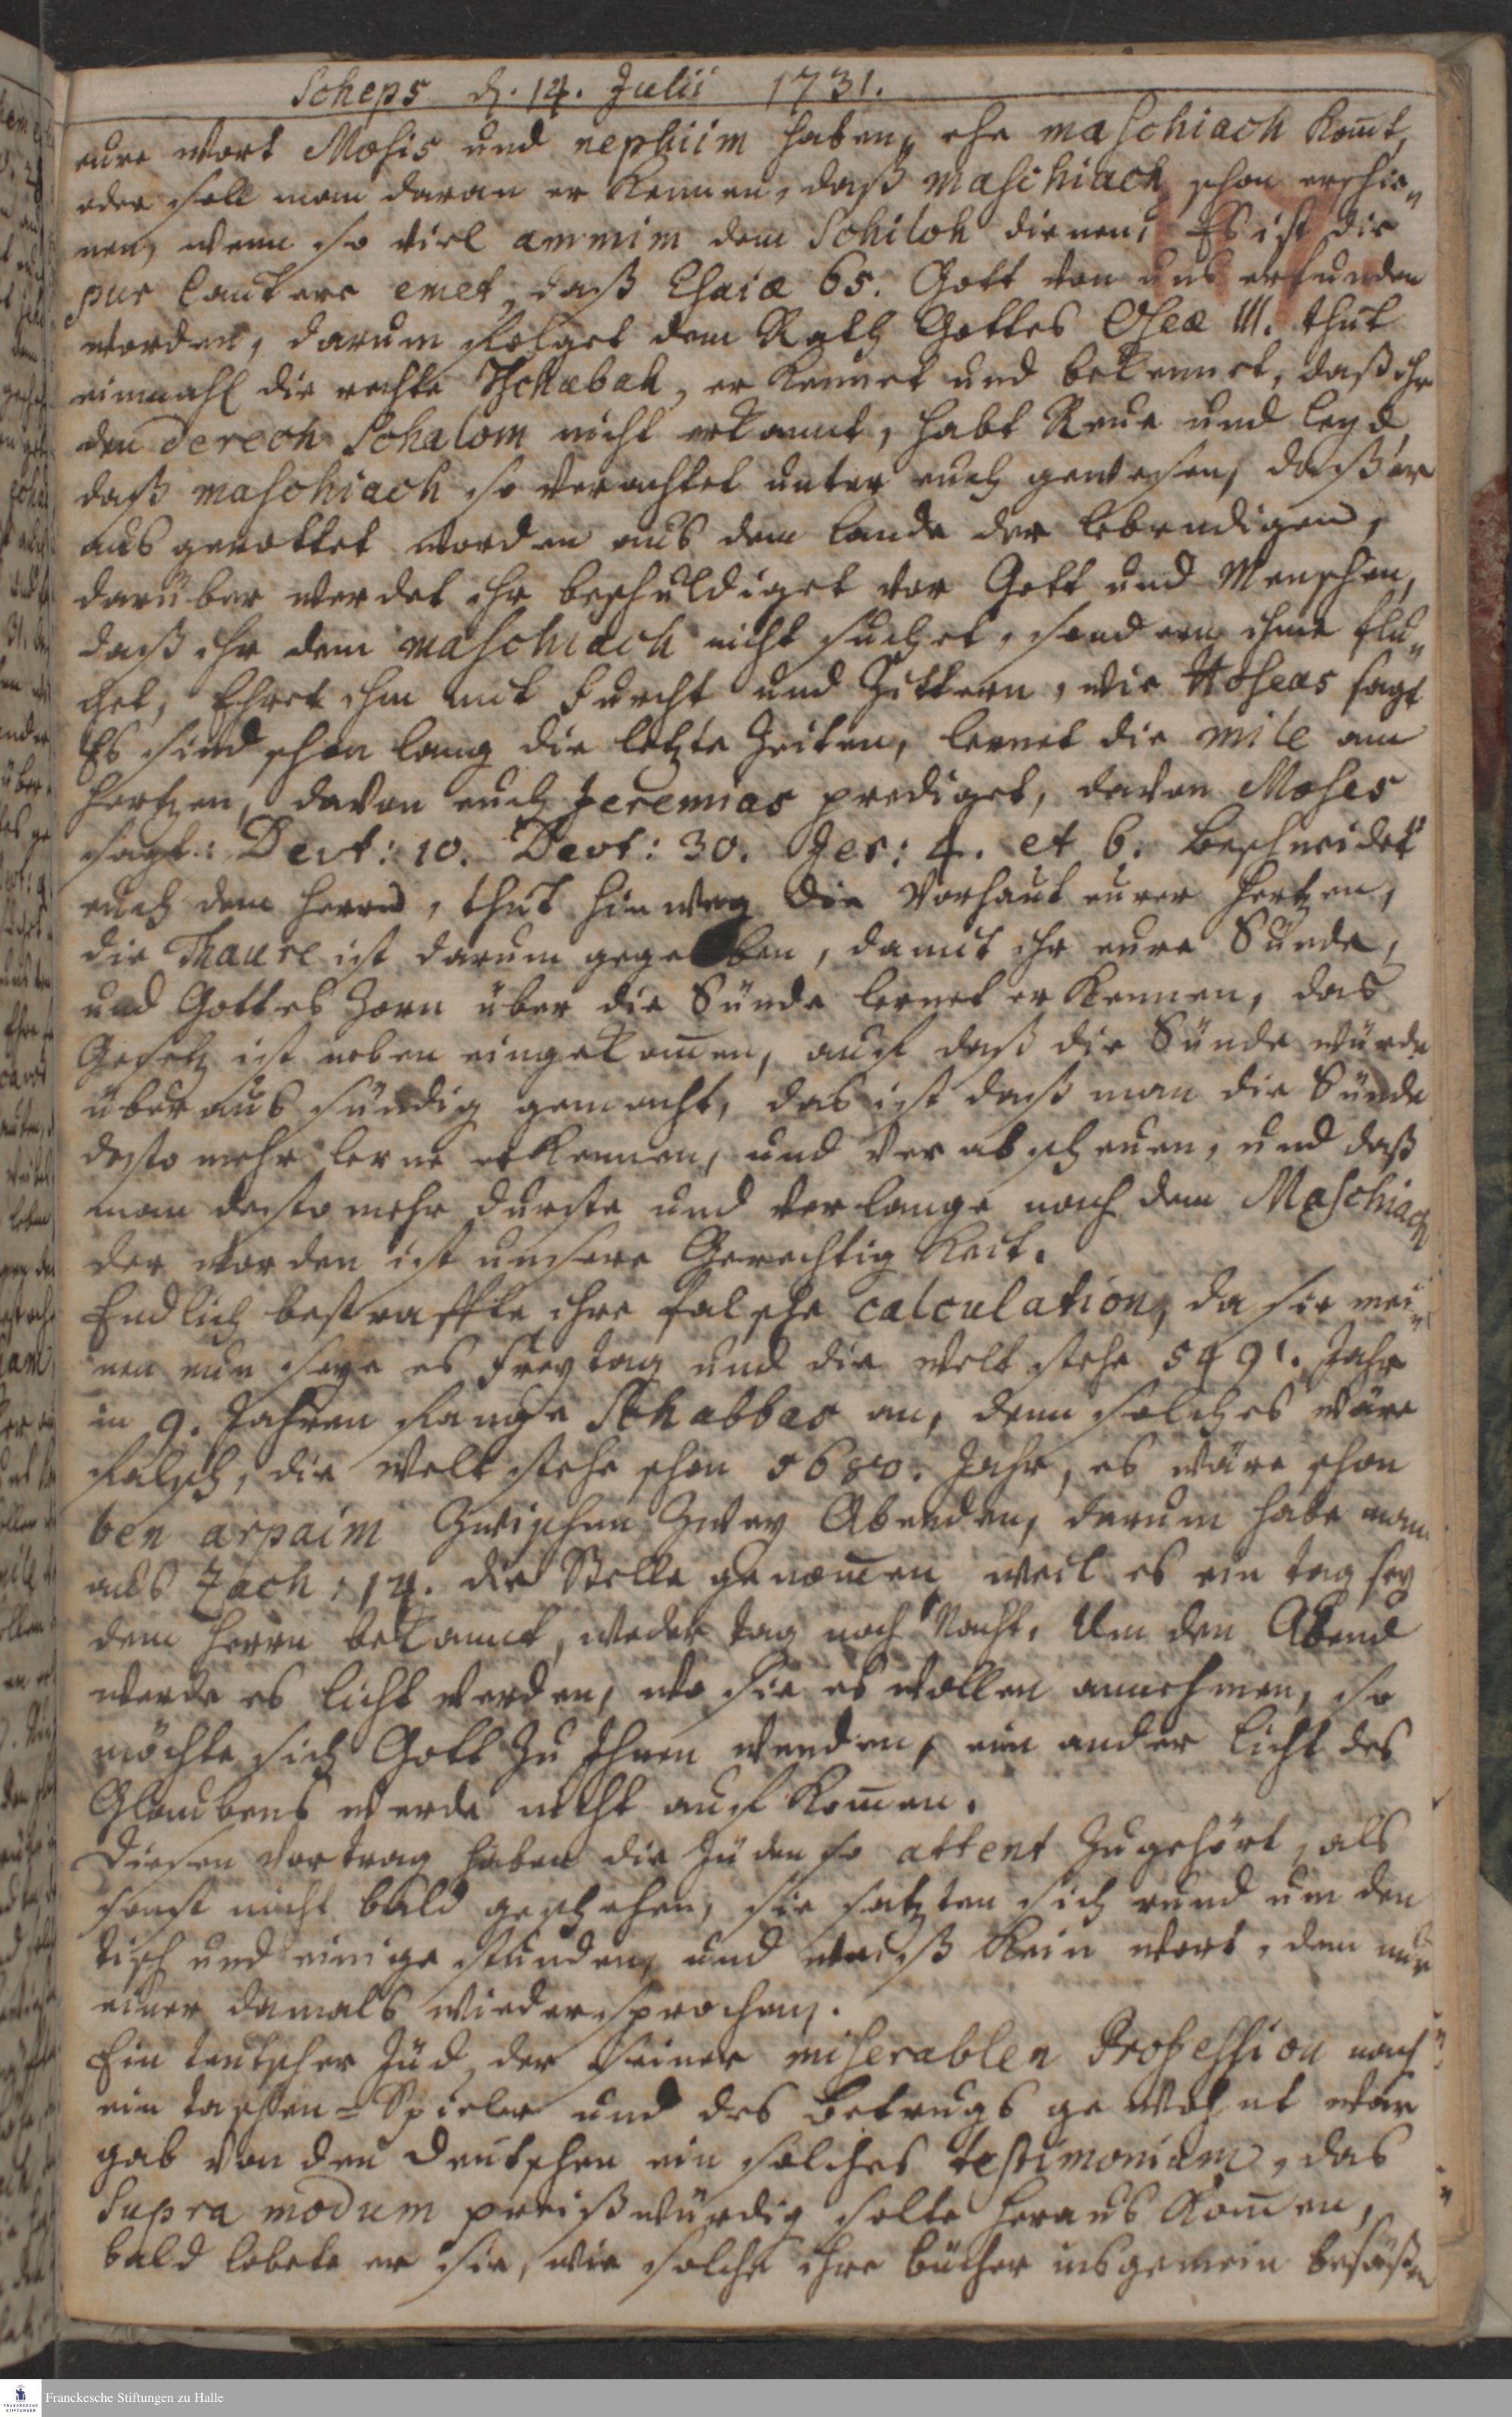 Scheps d. 14. Julii 1731.
eure Wort Mosis und nephiim haben, ehe maschiach komt,
oder soll man daran erkennen, daß maschiach schon erschie„
nen, wenn so viel ammim dem Schiloh dienen? Es ist die
pur lautere emet, daß Esaiæ 65. Gott von uns erfunden
worden, darum folget dem Rath Gottes Oseæ III. thut
einmahl die rechte Thchubah, erkennet und bekennet, daß ihr
den derech Schalom nicht erkannt, habt Reue und leyd,
daß maschiach so verachtet unter euch gewesen, daß er
ausgerottet worden aus dem Lande der lebendigen,
darüber werdet ihr beschuldiget vor Gott und Menschen,
daß ihr dem maschiach nicht suchet, sondern ihme flu„
chet, Ehret ihn mit Furcht und Zittern, wie Hoseas sagt
Es sind schon lang die letzte Zeiten, lernet die mile am
Hertzen, davon euch Jeremias prediget, davon Moses
sagt: Deut: 10. Deut: 30. Jer: 4. et 6. Beschneidet
euch dem Herrn, thut hinweg die Vorhaut eurer Hertzen,
die Thaure ist darum gegeben, damit ihr eure Sünde,
und Gottes Zorn über die Sünde lernet erkennen, das
Gesetz ist neben eingekomen, auf daß die Sünde würde
überaus sündig gemacht, das ist daß man die Sünde
desto mehr lerne erkennen, und verabscheuen, und daß
man desto mehr durste und verlange nach dem Maschiach
der worden ist unsere Gerechtigkeit.
Endlich bestraffte ihre falsche calculation, da sie mei„
nen nun seye es Freytag und die Welt stehe 5491. Jahr
in 9. Jahren fange Schabbas an, denn solches wäre
falsch, die Welt stehe schon 5680. Jahr, es wäre schon
ben arpaim zwischen zwey Abenden, darum habe man
aus Zach: 14. die Stelle genomen weil es ein tag sey
dem Herrn bekannt, weder tag noch Nacht. Um den Abend
werde es licht werden, wo sie es wollen annehmen, so
möchte sich Gott zu Ihnen wenden, ein ander Licht des
Glaubens werde nicht aufkomen.
Diesen Vortrag haben die Jüden so attent zugehört, als
sonst nicht bald geschehen, sie satzten sich rund um den
tisch und einige stunden, und weiß kein Wort, dem nur
einer damals wiedersprochen.
Ein teutscher Jüd, der seiner miserablen Profession nach
ein taschen=Spieler und des betrugs gewohnt war
gab von den Deutschen ein solches testimonium, das
supra modum preißwürdig solte herauskomen,
bald lobete er sie, wie solche ihre bücher insgemein besäßen
Franckesche Stiftungen zu Halle